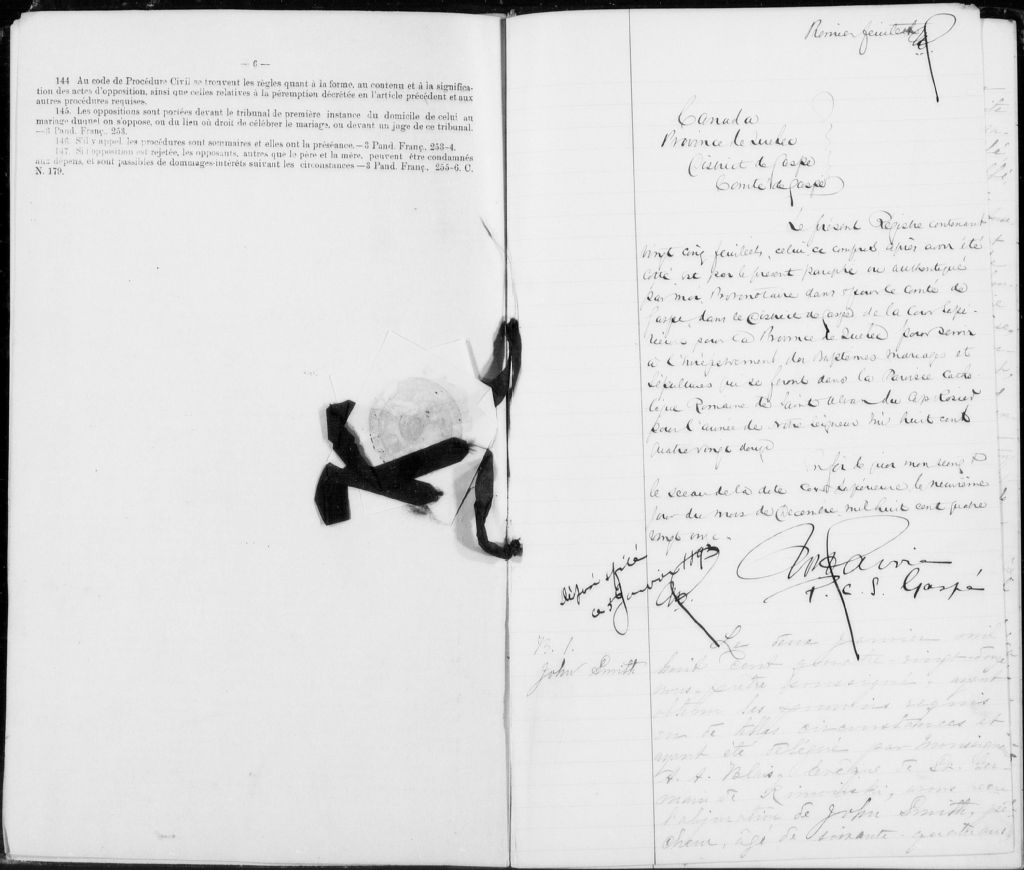 — 6 —
144 Au code de Procédure Civil se trouvent les règles quant à la forme, au contenu et à la significa-
tion des actes d'opposition, ainsi que celles relatives à la péremption décrétée en l'article précédent et aux
autres procédures requises.
145. Les oppositions sont portées devant le tribunal de première instance du domicile de celui au
mariage duquel on s'oppose, ou du lieu où droit de célébrer le mariage, ou devant un juge de ce tribunal.
—3 Pand. Franç., 253.
146. S'il y appel, les procédures sont sommaires et elles ont la préséance.—3 Pand. Franç., 253-4.
147. Si l'opposition est rejetée, les opposants, autres que le père et la mère, peuvent être condamnés
aux dépens, et sont passibles de dommages-intérêts suivant les circonstances—3 Pand. Franç., 255-6. C.
N. 179.
Premier feuillet
Canada
Province de Québec
District de Gaspé
Comté de Gaspé
Le présent Régistre contenant
vingt cinq feuillets, celui ce compris après avoir été
coté par le présent paraphe authentiqué
par moi, Protonotaire dans & pour le comté de
Gaspé, dans le District de Gaspé de la Cour Supé-
rieure pour la Province de Québec pour servir
à l'enregistrement des Baptêmes Mariages et
Sépultures qui se feront dans la Paroisse Catho-
lique Romaine de Saint Alban du Cap Rosier
pour l'année de notre Seigneur mil huit cent
quatre vingt douze
En foi de quoi mon seing &
le sceau de la dite Cour Supérieure le neuvième
jour du mois de Décembre mil huit cent quatre
vingt onze.
P. C. S. Gaspé
ce 5 Janvier 1893
B. 1.
John Smith
Le janvier mil
huit cent quatre-vingt-douze
nous prêtre soussigné, ayant
obtenu les pouvoirs requis
en de telles circonstances et
ayant été délégué par Monseigneur
A. A. Blais, évêque de St. Ger-
main de Rimouski, avons reçu
l'abjuration de John Smith, pê-
cheur, âgé de soixante-quatre ans